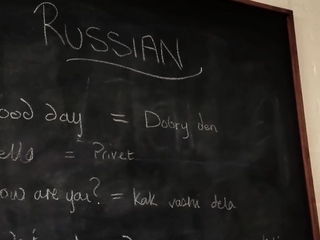 RUSSIAN
ood day = Dobry den
ello = Privet
ow are you? = kak vashi dela